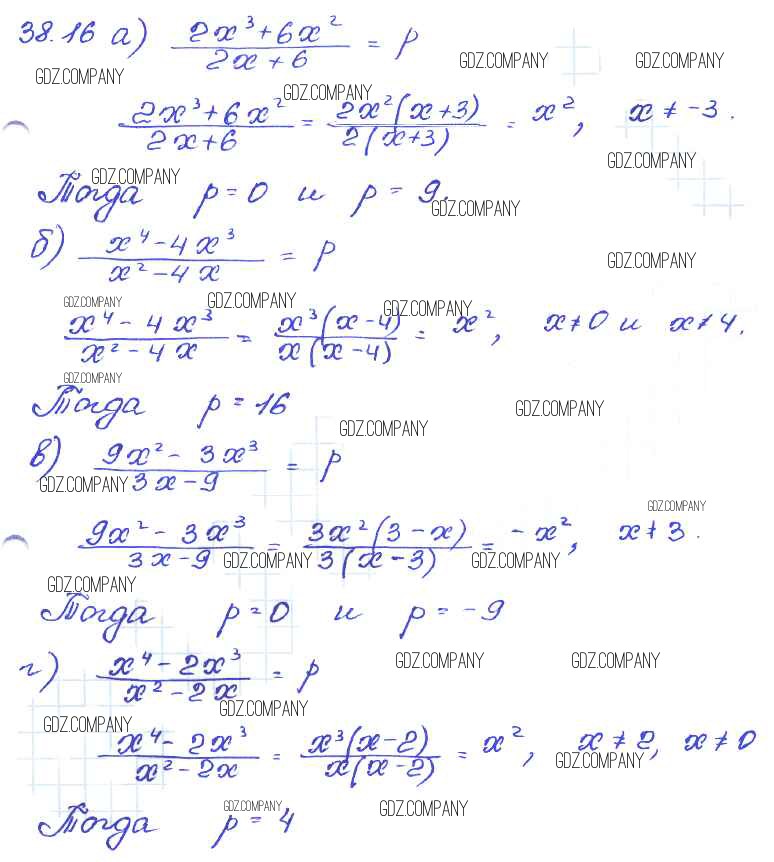 38.16 а) (2x³+6x²)/(2x+6) = p
GDZ.COMPANY GDZ.COMPANY GDZ.COMPANY
GDZ.COMPANY
(2x³+6x²)/(2x+6) = (2x²(x+3))/(2(x+3)) = x², x ≠ -3.
GDZ.COMPANY
GDZ.COMPANY
Тогда p=0 и p=9.
GDZ.COMPANY
б) (x⁴-4x³)/(x²-4x) = p
GDZ.COMPANY
GDZ.COMPANY GDZ.COMPANY GDZ.COMPANY
(x⁴-4x³)/(x²-4x) = (x³(x-4))/(x(x-4)) = x², x≠0 и x≠4.
GDZ.COMPANY
Тогда p=16
GDZ.COMPANY
GDZ.COMPANY
в) (9x²-3x³)/(3x-9) = p
GDZ.COMPANY
GDZ.COMPANY
(9x²-3x³)/(3x-9) = (3x²(3-x))/(3(x-3)) = -x², x≠3.
GDZ.COMPANY GDZ.COMPANY
GDZ.COMPANY
Тогда p=0 и p=-9
г) (x⁴-2x³)/(x²-2x) = p
GDZ.COMPANY GDZ.COMPANY
GDZ.COMPANY
GDZ.COMPANY
(x⁴-2x³)/(x²-2x) = (x³(x-2))/(x(x-2)) = x², x≠2, x≠0
GDZ.COMPANY
GDZ.COMPANY GDZ.COMPANY
Тогда p=4